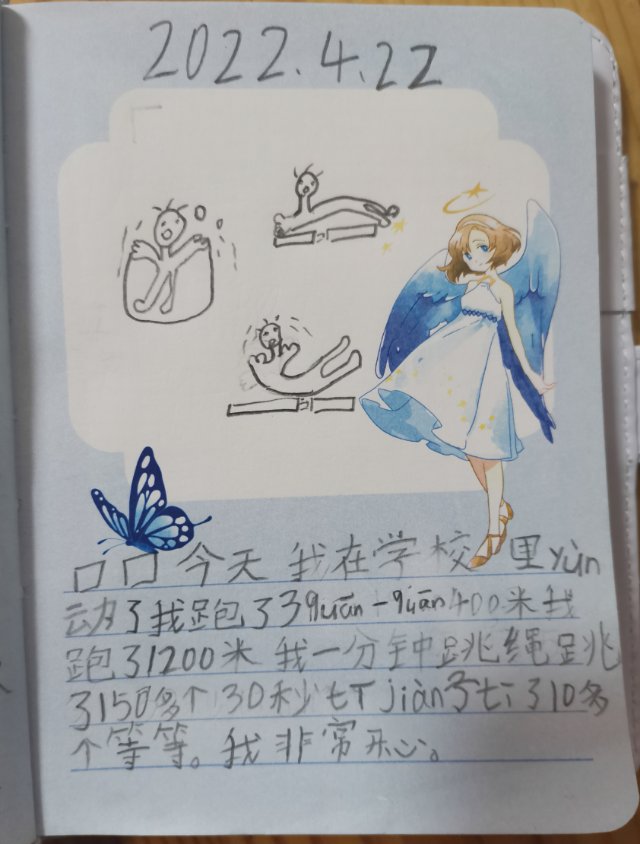 2022.4.22
口口今天我在学校里yùn
动了我跑了3quān一quān400米我
跑了1200米我一分钟跳绳跳
了150多个30秒七丁jiàn子七丁了10多
个等等。我非常开心。